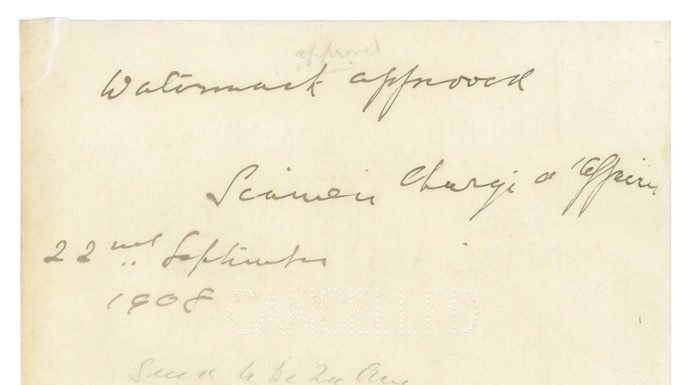 approved
Watermark approved
Siamese Chargé d'Affaires
22nd September
1908
CANCELLED